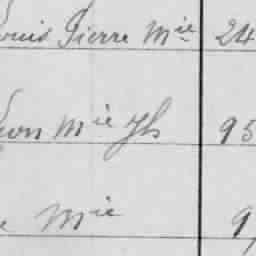 Louis Pierre Mie 24
Léon Mie Jh 95
Mie 9